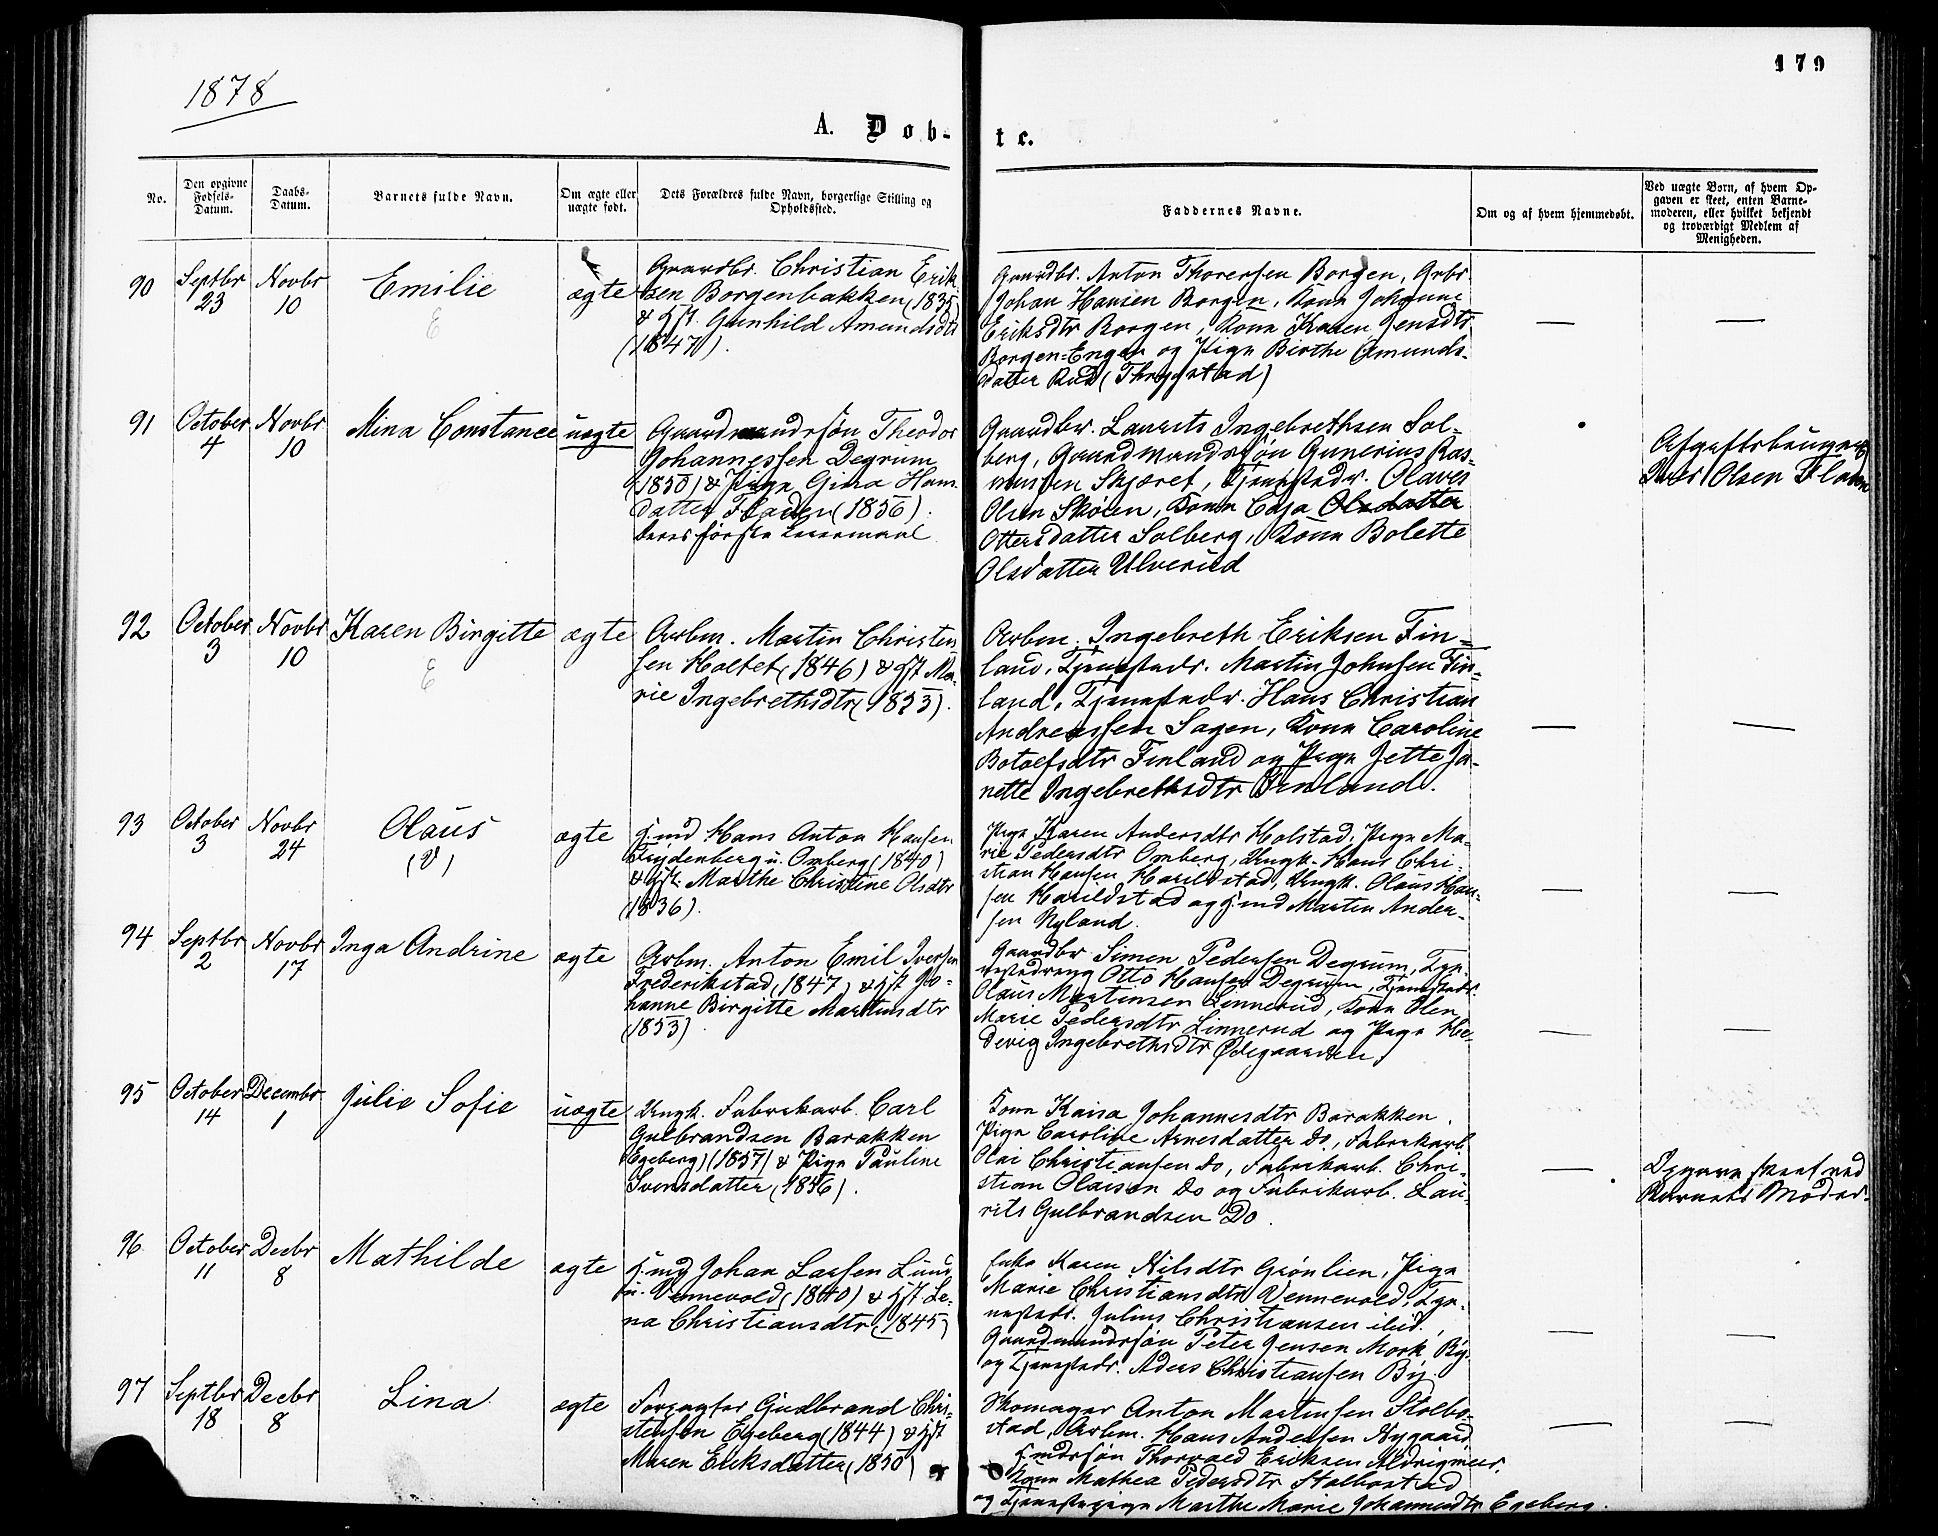 1878
179
A. Døb-
te.
No.
Den opgivne Fødsels-Datum.
Daabs-Datum.
Barnets fulde Navn.
Om ægte eller uægte født.
Dets Forældres fulde Navn, borgerlige Stilling og Opholdssted.
Faddernes Navne.
Om og af hvem hjemmedøbt.
Ved uægte Børn, af hvem Opgaven er skeet, enten Barnemoderen, eller hvilket bekjendt og troværdigt Medlem af Menigheden.
90
Septbr 23
Novbr 10
Emilie
E
ægte
Gaardbr. Christian Erik
sen Borgenbakken (1835)
& Hst. Gunhild Amundsdtr
(1847).
Gaardbr. Anton Thoresen Borgen, Grbr
Johan Hansen Borgen, Kone Johanne
Eriksdtr Borgen, Kone Karen Jensdtr
Borgen-Engen og Pige Birthe Amunds-
datter Rud (Thrygstad)
—
—
91
October 4
Novbr 10
Mina Constance
uægte
Gaardmandssøn Theodor
Johannessen Degrum
(1850) & Pige Gina Hans
datter Fladen (1856).
deres første Leiermaal
Gaardbr. Laurits Ingebrethsen Sol-
berg, Gaardmandssøn Gunerius Ras-
mussen Skjæret, Tjenestedr. Olaves
Olsen Skøien, Kone Caja Olsdatter
Ottersdatter Solberg, Kone Bolette
Olsdatter Ulverud
Olsen
92
October 3
Novbr 10
Karen Birgitte
E
ægte
Arbm. Martin Christen
sen Holtet (1846) & Hst Ma-
rie Ingebrethsdtr (1853).
Arbm. Ingebreth Eriksen Fin-
land, Tjenestedr. Martin Johnsen Fin-
land, Tjenestedr. Hans Christian
Andreassen Sagen, Kone Caroline
Botolfsdtr Finland og Pige Jette Ja-
nette Ingebrethsdtr Finland.
—
—
93
October 3
Novbr 24
Olaus
(V)
ægte
Hmd Hans Anton Hansen
Frydenberg u. Omberg (1840)
& Hst. Marthe Christine Olsdtr
(1836).
Pige Karen Andersdtr Holstad, Pige Ma-
rie Pedersdtr Omberg, Ungk. Hans Chri-
stian Hansen Harildstad, Ungk. Olaus Han-
sen Harildstad og Hmd Martin Ander-
sen Nyland.
—
—
94
Septbr 2
Novbr 17
Inga Andrine
ægte
Arbm. Anton Emil Iversen
Frederikstad (1847) & Hst Jo-
hanne Birgitte Martinsdtr
(1853).
Gaardbr Simen Pedersen Degrum, Tje-
nestedreng Otto Hansen Degrum, Tjenestedr.
Olaus Martinsen Linnerud, Kone Olen
Marie Pedersdtr Linnerud og Pige He-
devig Ingebrethsdtr Ødegaarden.
—
—
95
October 14
Decembr 1
Julie Sofie
uægte
Ungk. Fabrikarb. Carl
Gulbrandsen Barakken
(Egeberg) (1857) & Pige Pauline
Svensdatter (1856).
Kone Kaisa Johannesdtr Barakken.
Pige Caroline Arnesdatter Do, Fabrikarb.
Olai Christiansen Do, Fabrikarb. Chri-
stian Olaisen Do og Fabrikarb. Lau-
rits Gulbrandsen Do.
—
Opgaven skeet ved
Barnets Moder.
96
October 11
Decbr 8
Mathilde
ægte
Hmd Johan Larsen Lund
u. Vennevold (1840) & Hst Le-
na Christiansdtr (1845)
Enke Karen Nilsdtr Grønlien, Pige
Marie Christiansdtr Vennevold, Tje-
nestedr. Julius Christiansen ibid,
Gaardmandssøn Peter Jensen Mork By
og Tjenestedr. Aders Christiansen By.
—
—
97
Septbr 18
Decbr 8
Lina
ægte
Forpagter Gudbrand Chri-
stensen Egeberg (1844) & Hst
Maren Eriksdatter (1850)
Skomager Anton Martinsen Stolbo-
stad, Arbm. Hans Andersen Nygaard,
Gmdssøn Thorvald Eriksen
Kone Mathea Pedersdtr Stolbostad
og Tjenestepige Marthe Marie Johannesdtr Egeberg.
—
—